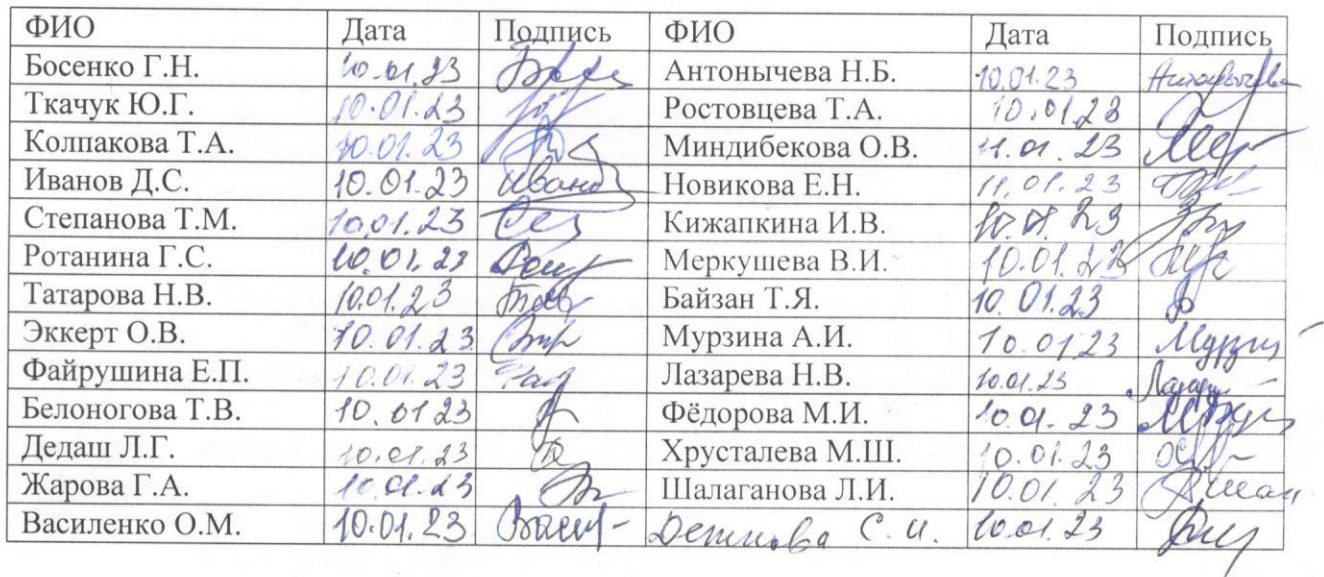 ФИО Дата Подпись ФИО Дата Подпись
Босенко Г.Н. 10.01.23 Антонычева Н.Б. 10.01.23
Ткачук Ю.Г. 10.01.23 Ростовцева Т.А. 10.01.23
Колпакова Т.А. 10.01.23 Миндибекова О.В. 11.01.23
Иванов Д.С. 10.01.23 Иванов Новикова Е.Н. 11.01.23
Степанова Т.М. 10.01.23 Кижапкина И.В. 10.01.23
Ротанина Г.С. 10.01.23 Меркушева В.И. 10.01.23
Татарова Н.В. 10.01.23 Байзан Т.Я. 10.01.23
Эккерт О.В. 10.01.23 Мурзина А.И. 10.01.23
Файрушина Е.П. 10.01.23 Лазарева Н.В. 10.01.23
Белоногова Т.В. 10.01.23 Фёдорова М.И. 10.01.23
Дедаш Л.Г. 10.01.23 Хрусталева М.Ш. 10.01.23
Жарова Г.А. 10.01.23 Шалаганова Л.И. 10.01.23
Василенко О.М. 10.01.23 С.И. 10.01.23